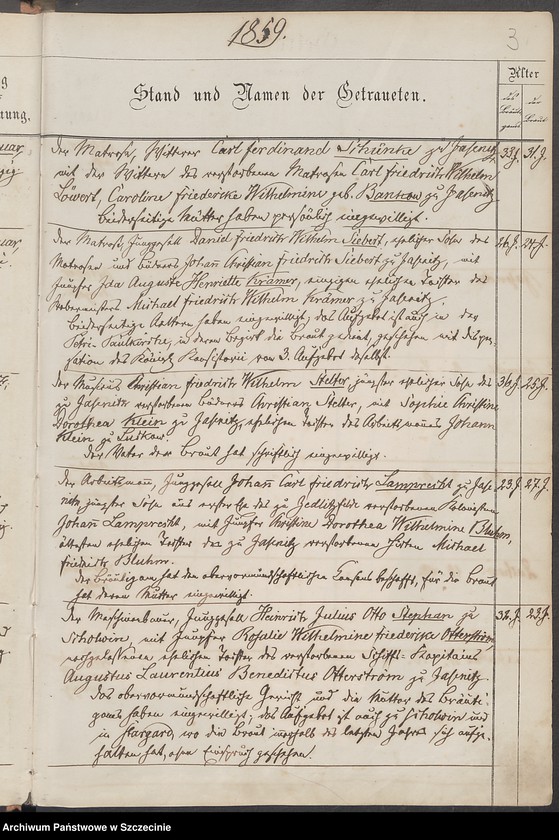 1859.
3
Stand und Namen der Getraueten.
Alter
des Bräutigams
der Braut
Der Matrose, Wittwer Carl Ferdinand Schünke zu Jasenitz 33J. 31J.
mit der Wittwe des verstorbenen Matrosen Carl Friedrich Wilhelm
Löwert, Caroline Friedericke Wilhelmine geb. Bankow zu Jasenitz
beiderseitige Mütter haben persönlich eingewilligt.
Der Matrose, Junggesell Daniel Friedrich Wilhelm Siebert, ehelicher Sohn des 26J. 24J.
Matrosen und Büdners Johann Christian Friedrich Siebert zu Jasenitz, mit
Jungfer Ida Auguste Henriette Krämer, einzigen ehelichen Tochter des
Michael Friedrich Wilhelm Krämer zu Jasenitz.
beiderseitige Aeltern haben eingewilligt, das Aufgebot ist auch in der
Petri-Paulkirche, in deren Bezirk die Braut gedient, geschehen mit Dispen-
sation des Königl. Konsistorii vom 3. Aufgebot daselbst.
Der Christian Friedrich Wilhelm Stelter, jüngster ehelicher Sohn des 36J. 25J.
zu Jasenitz verstorbenen Büdners Christian Stelter, mit Sophie Christine
Dorothea Klein zu Jasenitz, ehelichen Tochter des Arbeitsmannes Johann
Klein zu Luckow.
Der Vater der Braut hat schriftlich eingewilligt.
Der Arbeitsmann, Junggesell Johann Carl Friedrich Lamprecht zu Jase- 23J. 27J.
nitz, jüngster Sohn aus erster Ehe des zu Jedlitzfelde verstorbenen Kolonisten
Johann Lamprecht, mit Jungfer Christine Dorothea Wilhelmine Bluhm,
ältesten ehelichen Tochter des zu Jasenitz verstorbenen Hirten Michael
Friedrich Bluhm.
Der Bräutigam hat den obervormundschaftlichen Consens beschafft, für die Braut
hat deren Mutter eingewilligt.
Der Maschinenbauer, Junggesell Heinrich Julius Otto Stephan zu 32J. 23J.
Scholwin, mit Jungfer Rosalie Wilhelmine Friedericke Otterström,
nachgelassenen ehelichen Tochter des verstorbenen Schiffs-Kapitains
Augustus Laurentius Benedictus Otterström zu Jasenitz.
Das obervormundschaftliche Gericht und die Mutter des Bräuti-
gams haben eingewilligt; das Aufgebot ist auch zu Scholwin und
in Stargard, wo die Braut innerhalb des letzten Jahres sich aufge-
halten hat, ohne Einspruch geschehen.
Archiwum Państwowe w Szczecinie